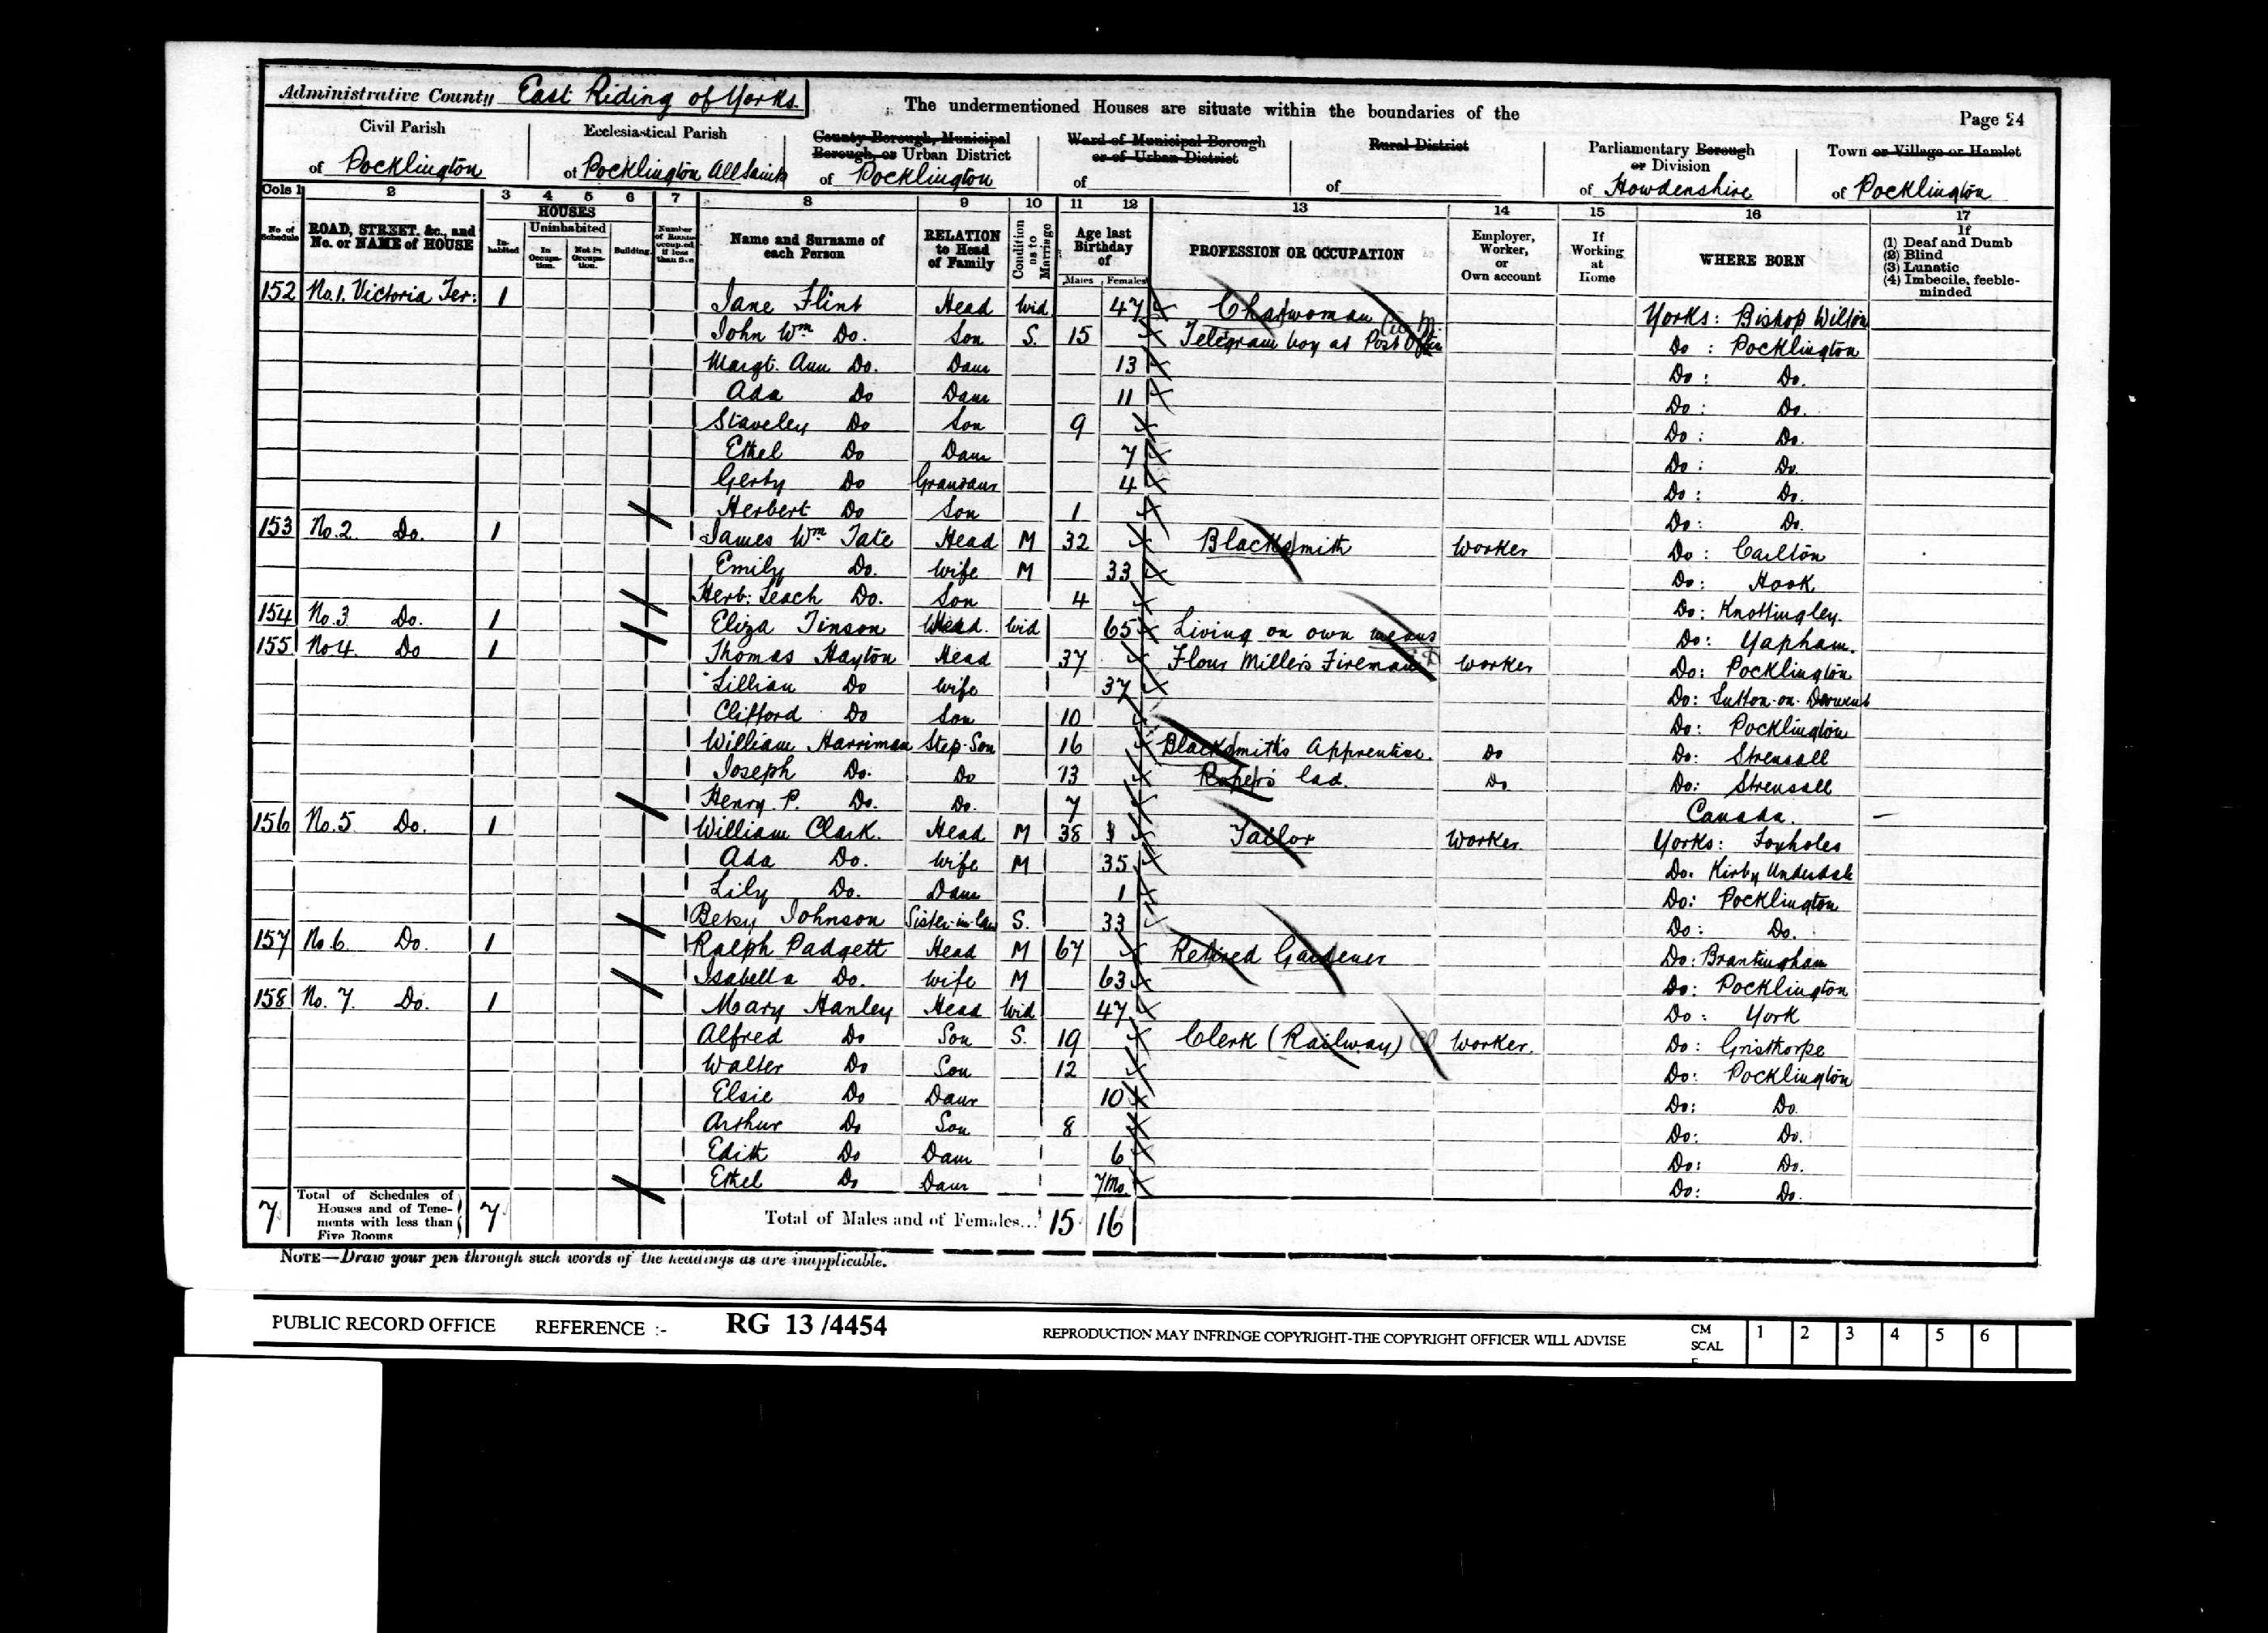 Administrative County East Riding of Yorks. The undermentioned Houses are situate within the boundaries of the Page 24
Civil Parish of Pocklington
Ecclesiastical Parish of Pocklington All Saints
County Borough, Municipal Borough, or Urban District of Pocklington
Ward of Municipal Borough or of Urban District of
Rural District of
Parliamentary Borough or Division of Howdenshire
Town or Village or Hamlet of Pocklington
Cols 1 2 3 4 5 6 7 8 9 10 11 12 13 14 15 16 17
No. of Schedule
ROAD, STREET, &c., and No. or NAME of HOUSE
HOUSES
In-habited
Uninhabited
In Occupa-tion.
Not in Occupa-tion.
Building.
Number of Rooms occupied if less than five
Name and Surname of each Person
RELATION to Head of Family
Condition as to Marriage
Age last Birthday of
Males Females
PROFESSION OR OCCUPATION
Employer, Worker, or Own account
If Working at Home
WHERE BORN
If
(1) Deaf and Dumb
(2) Blind
(3) Lunatic
(4) Imbecile, feeble-minded
152 No. 1. Victoria Ter: 1 Jane Flint Head Wid 47 Charwoman Yorks: Bishop Wilton
John Wm Do. Son S. 15 Telegram boy at Post Office Do: Pocklington
Margt. Ann Do. Daur 13 Do: Do.
Ada Do Daur 11 Do: Do.
Staveley Do Son 9 Do: Do.
Ethel Do Daur 7 Do: Do.
Gerty Do Grandaur 4 Do: Do.
Herbert Do Son 1 Do: Do.
153 No. 2. Do. 1 James Wm Tate Head M 32 Blacksmith Worker Do: Carlton
Emily Do. Wife M 33 Do: Hook
Herb: Leach Do. Son 4 Do: Knottingley.
154 No. 3 Do. 1 Eliza Tinson Head. Wid 65 Living on own means Do: Yapham.
155 No 4. Do 1 Thomas Hayton Head 37 Flour Millers Fireman Worker Do: Pocklington
Lillian Do Wife 37 Do: Sutton-on-Derwent
Clifford Do Son 10 Do: Pocklington
William Harriman Step-Son 16 Blacksmith's Apprentice. Do Do: Strensall
Joseph Do. Do 13 Roper's lad. Do Do: Strensall
Henry P. Do. Do. 7 Canada. —
156 No. 5 Do. 1 William Clark. Head M 38 Tailor Worker Yorks: Foxholes
Ada Do. Wife M 35 Do: Kirby Underdale
Lily Do. Daur 1 Do: Pocklington
Beky Johnson Sister-in-law S. 33 Do: Do.
157 No. 6 Do. 1 Ralph Padgett Head M 67 Retired Gardener Do: Brantingham
Isabella Do. Wife M 63 Do: Pocklington
158 No. 7. Do. 1 Mary Hanley Head Wid 47 Do: York
Alfred Do Son S. 19 Clerk (Railway) Worker. Do: Gristhorpe
Walter Do Son 12 Do: Pocklington
Elsie Do Daur 10 Do: Do.
Arthur Do Son 8 Do: Do.
Edith Do Daur 6 Do: Do.
Ethel Do Daur 7 Mo. Do: Do.
7 Total of Schedules of Houses and of Tene-ments with less than Five Rooms 7 Total of Males and of Females... 15 16
NOTE—Draw your pen through such words of the headings as are inapplicable.
PUBLIC RECORD OFFICE REFERENCE :- RG 13/4454 REPRODUCTION MAY INFRINGE COPYRIGHT-THE COPYRIGHT OFFICER WILL ADVISE CM SCALE 1 2 3 4 5 6